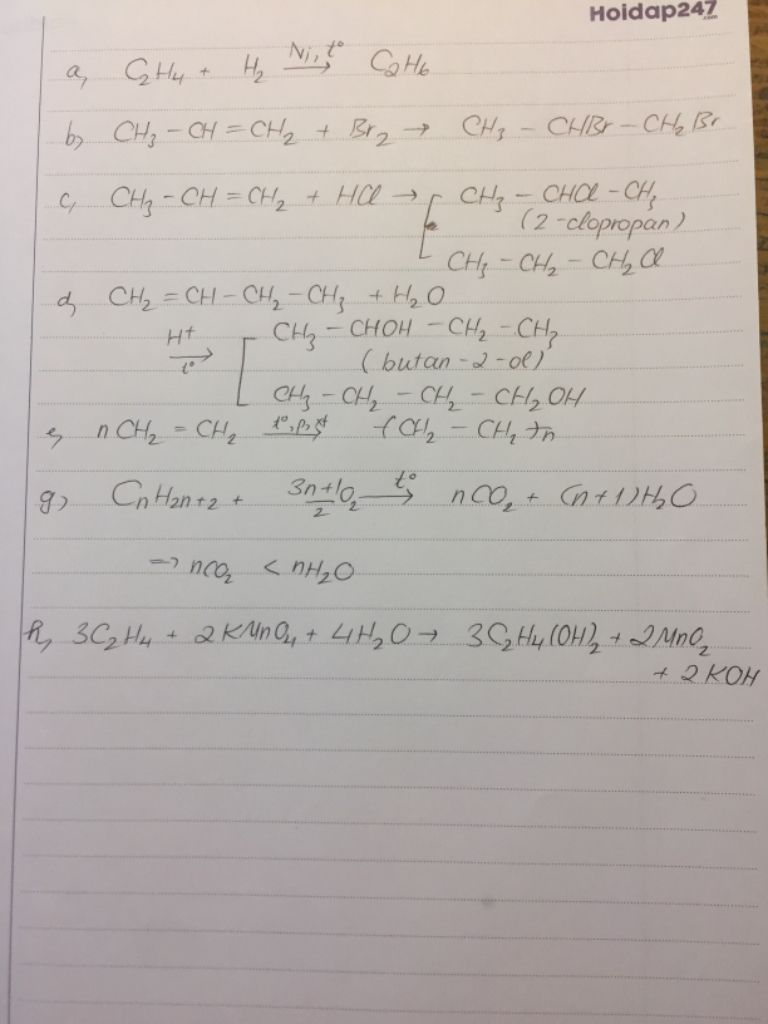 Hoidap247.com
a, C₂H₄ + H₂ —Ni, t°→ C₂H₆
b) CH₃ – CH = CH₂ + Br₂ → CH₃ – CHBr – CH₂Br
c, CH₃ – CH = CH₂ + HCl → [ CH₃ – CHCl – CH₃
(2-clopropan)
CH₃ – CH₂ – CH₂Cl
d, CH₂ = CH – CH₂ – CH₃ + H₂O
—H⁺, t°→ [ CH₃ – CHOH – CH₂ – CH₃
(butan-2-ol)
CH₃ – CH₂ – CH₂ – CH₂OH
e, nCH₂ = CH₂ —t°, p, xt→ –(CH₂ – CH₂)–n
g) CnH2n+2 + (3n+1)/2 O₂ —t°→ nCO₂ + (n+1)H₂O
=> nCO₂ < nH₂O
h, 3C₂H₄ + 2KMnO₄ + 4H₂O → 3C₂H₄(OH)₂ + 2MnO₂
+ 2KOH